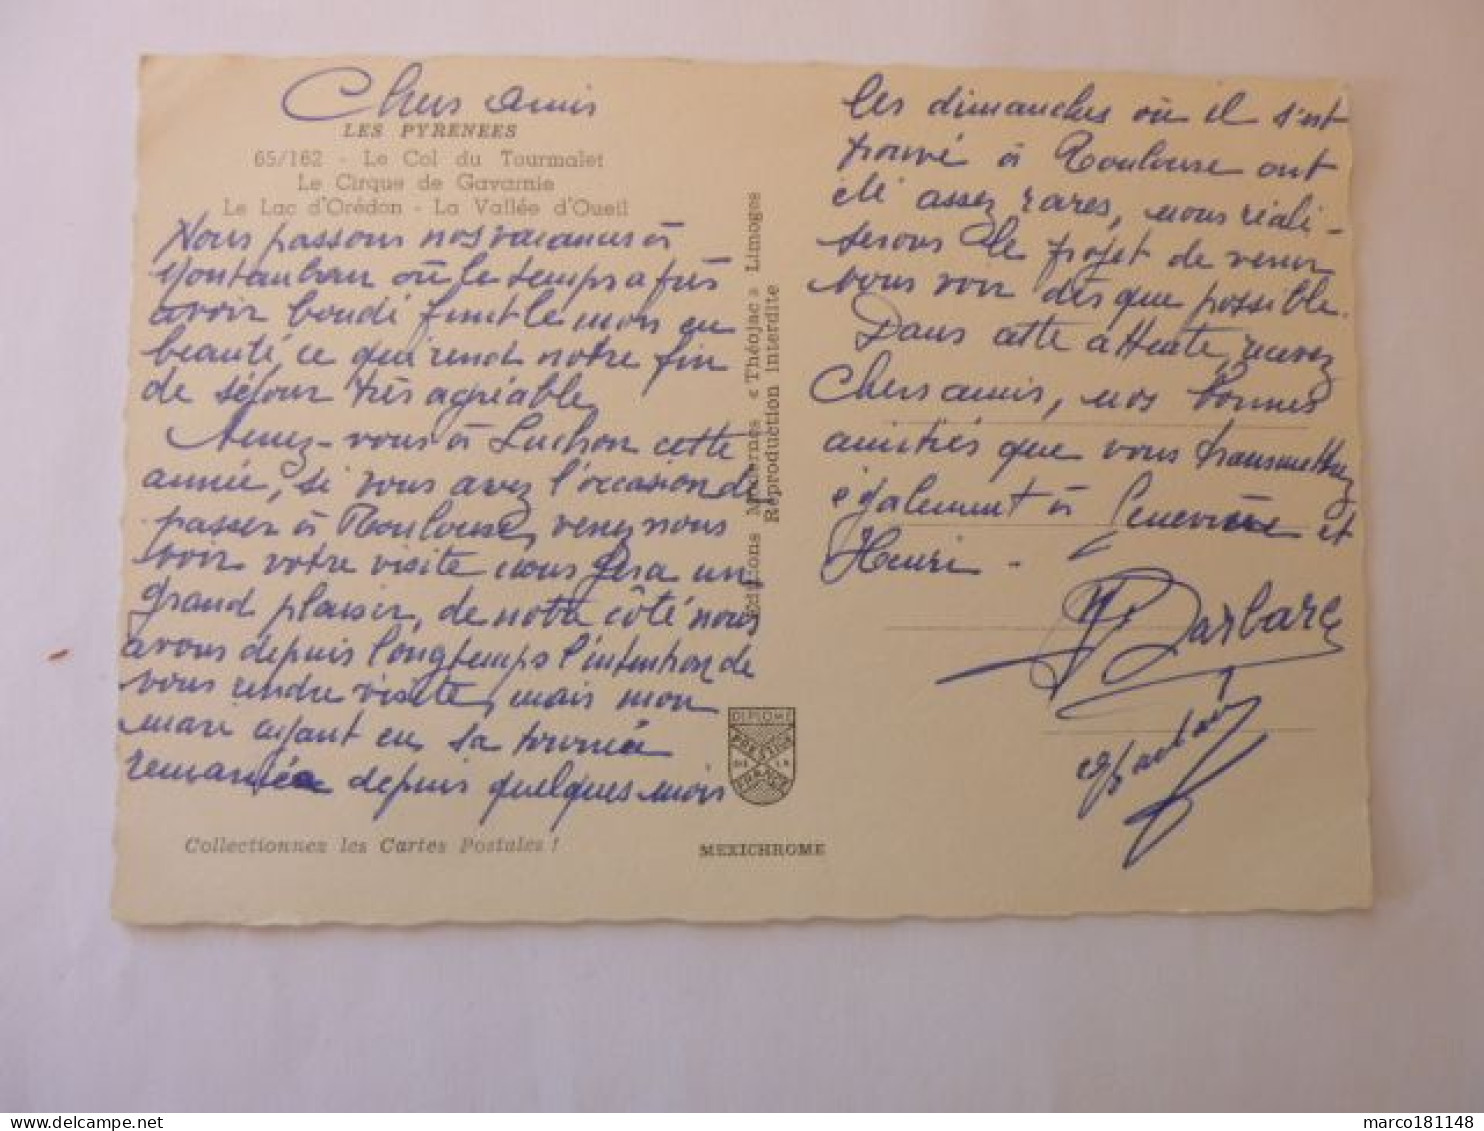 Chers amis
LES PYRENEES
65/162 - Le Col du Tourmalet
Le Cirque de Gavarnie
Le Lac d'Orédon - La Vallée d'Oueil
Nous passons nos vacances à
Montauban où le temps après
avoir boudé finit le mois en
beauté, ce qui rend notre fin
de séjour très agréable,
Venez-vous à Luchon cette
année, si vous avez l'occasion de
passer à Toulouse, venez nous
voir votre visite nous fera un
grand plaisir, de notre côté nous
avons depuis longtemps l'intention de
vous rendre visite, mais mon
mari ayant eu sa tournée
remaniée depuis quelques mois
Collectionnez les Cartes Postales !
Editions Modernes « Théojac » Limoges
Reproduction interdite
DIPLOME
PRESTIGE
DE LA
FRANCE
MEXICHROME
les dimanches où il s'est
trouvé à Toulouse ont
été assez rares, nous réali-
serons le projet de venir
vous voir dès que possible.
Dans cette attente, recevez
Chers amis, nos bonnes
amitiés que vous transmettrez
également à Geneviève et
Henri -
marco181148